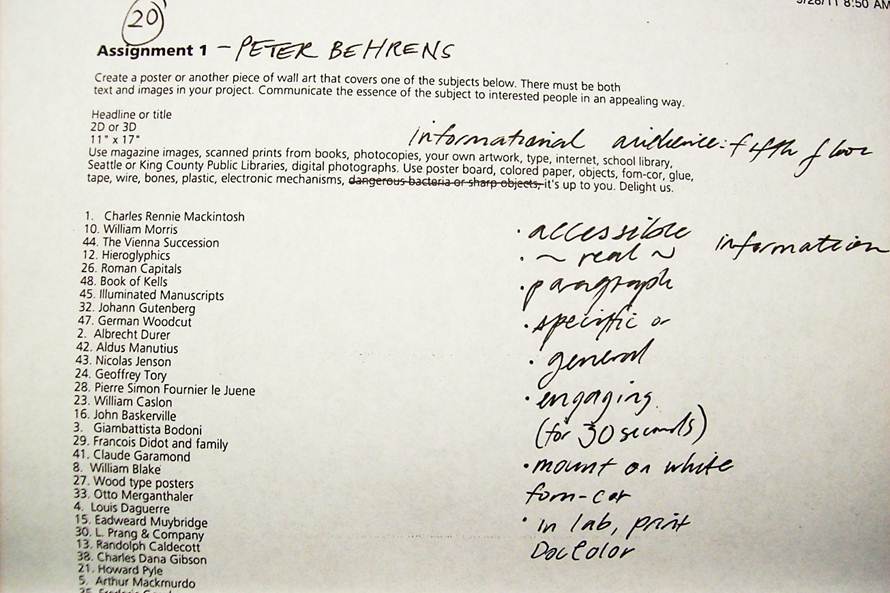 9/28/11 8:50 AM
20
Assignment 1 - PETER BEHRENS
Create a poster or another piece of wall art that covers one of the subjects below. There must be both
text and images in your project. Communicate the essence of the subject to interested people in an appealing way.
Headline or title
2D or 3D
11" x 17"
informational audience: fifth floor
Use magazine images, scanned prints from books, photocopies, your own artwork, type, internet, school library,
Seattle or King County Public Libraries, digital photographs. Use poster board, colored paper, objects, fom-cor, glue,
tape, wire, bones, plastic, electronic mechanisms, dangerous bacteria or sharp objects, it's up to you. Delight us.
1. Charles Rennie Mackintosh
10. William Morris
44. The Vienna Succession
12. Hieroglyphics
26. Roman Capitals
48. Book of Kells
45. Illuminated Manuscripts
32. Johann Gutenberg
47. German Woodcut
2. Albrecht Durer
42. Aldus Manutius
43. Nicolas Jenson
24. Geoffrey Tory
28. Pierre Simon Fournier le Juene
23. William Caslon
16. John Baskerville
3. Giambattista Bodoni
29. Francois Didot and family
41. Claude Garamond
8. William Blake
27. Wood type posters
33. Otto Merganthaler
4. Louis Daguerre
15. Eadweard Muybridge
30. L. Prang & Company
13. Randolph Caldecott
38. Charles Dana Gibson
21. Howard Pyle
5. Arthur Mackmurdo
· accessible
· ~ real ~ information
· paragraph
· specific or
· general
· engaging
(for 30 seconds)
· mount on white
fom-cor
· in lab, print
DocColor